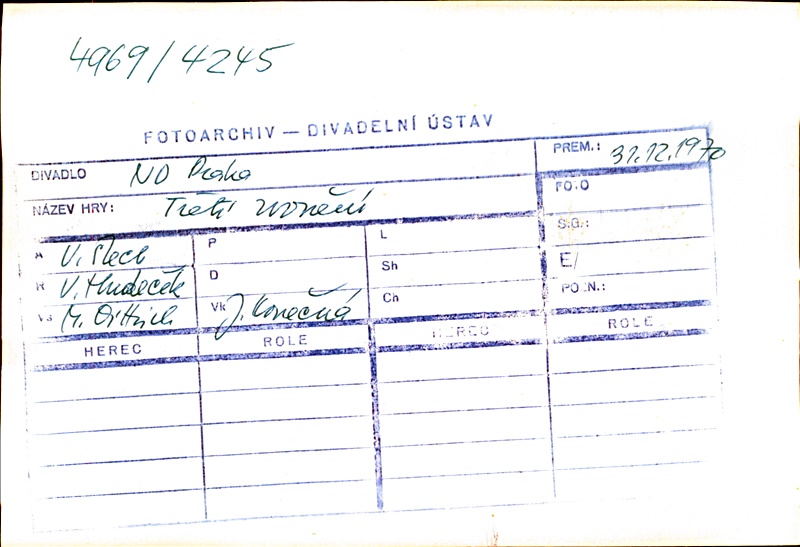 4969/4245
FOTOARCHIV — DIVADELNÍ ÚSTAV
DIVADLO ND Praha PREM.: 31.12.1970
NÁZEV HRY: Třetí zvonění FOTO
A V. Štech P L S.G.:
R V. Hudeček D Sh E/
Vs M. Dittrich Vk J. Konečná Ch POZN.:
HEREC ROLE HEREC ROLE